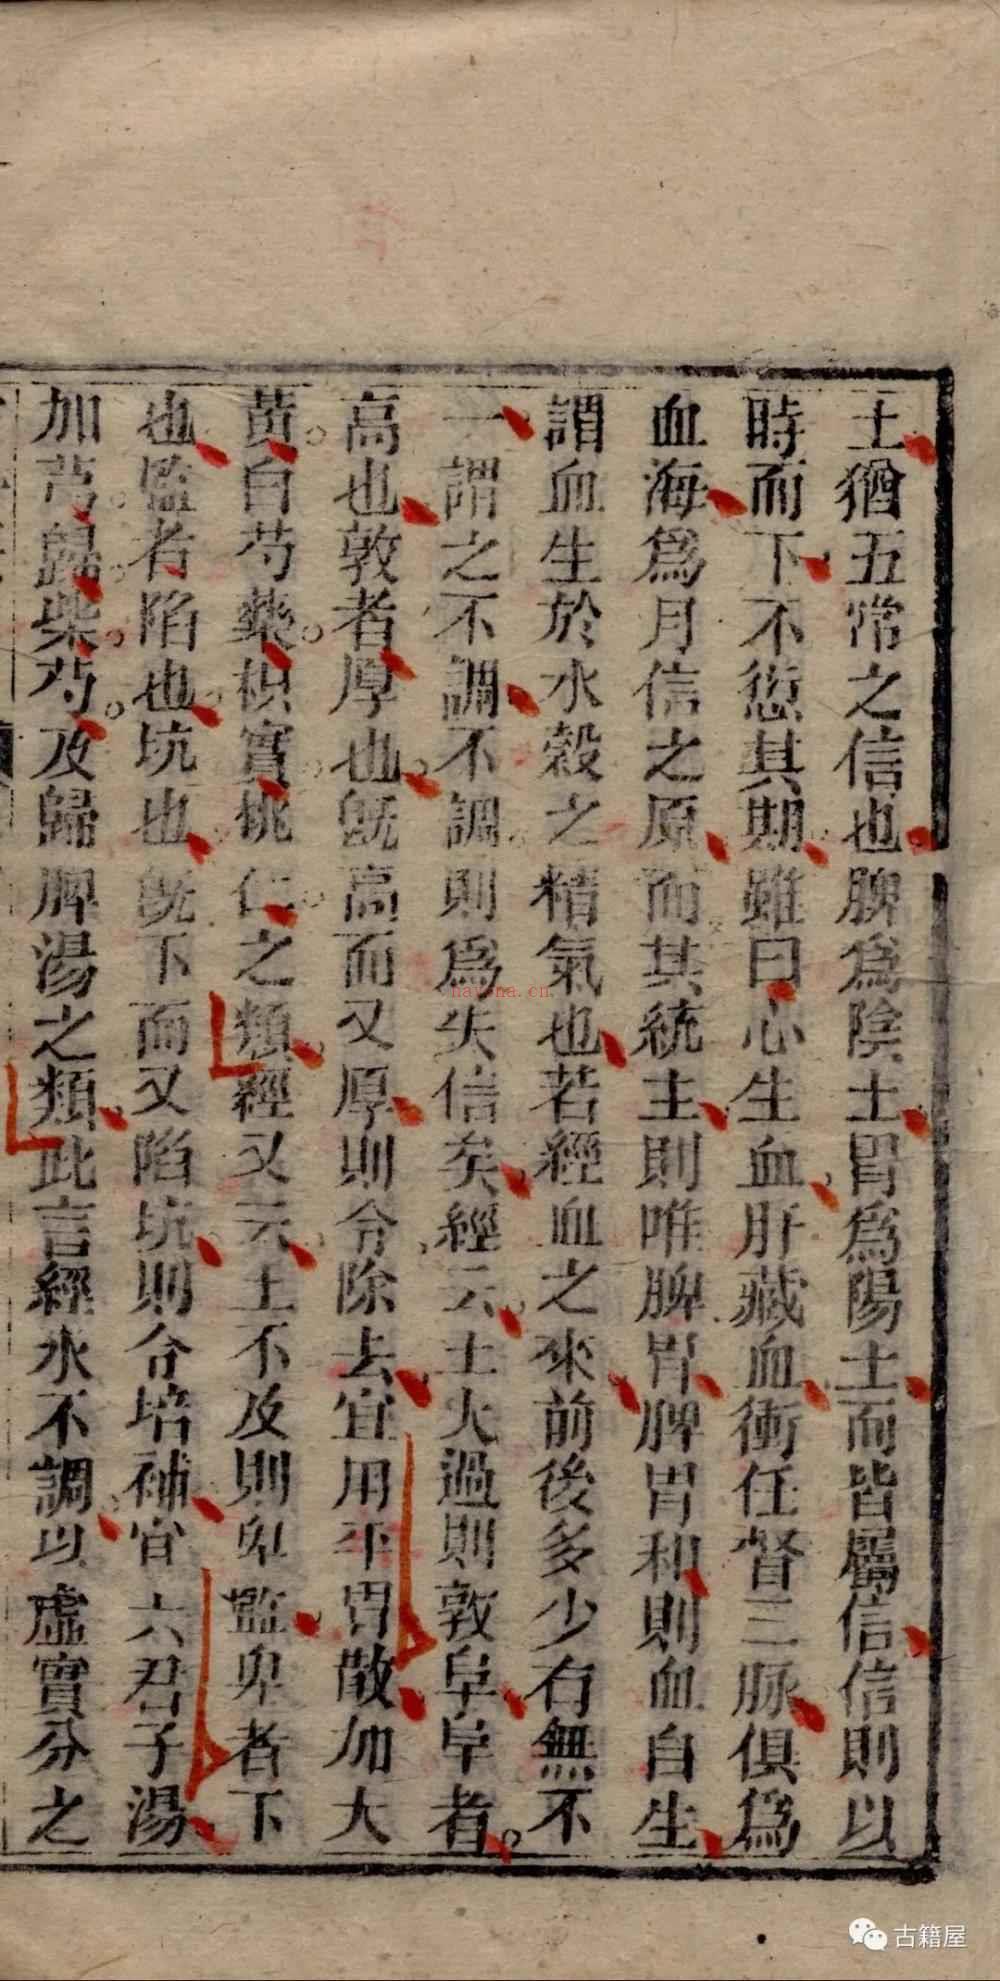 土猶五常之信也脾爲陰土胃爲陽土而皆屬信信則以
時而下不愆其期雖曰心生血肝藏血衝任督三脉俱爲
血海爲月信之原而其統主則唯脾胃脾胃和則血自生
謂血生於水穀之精氣也若經血之來前後多少有無不
一謂之不調不調則爲失信矣經云土太過則敦阜阜者
高也敦者厚也旣高而又厚則令除去宜用平胃散加大
黃白芍藥枳實桃仁之類經又云土不及則卑監卑者下
也監者陷也坑也旣下而又陷坑則令培補宜六君子湯
加芎歸柴芍及歸脾湯之類此言經水不調以虛實分之
hayona.cn
古籍屋